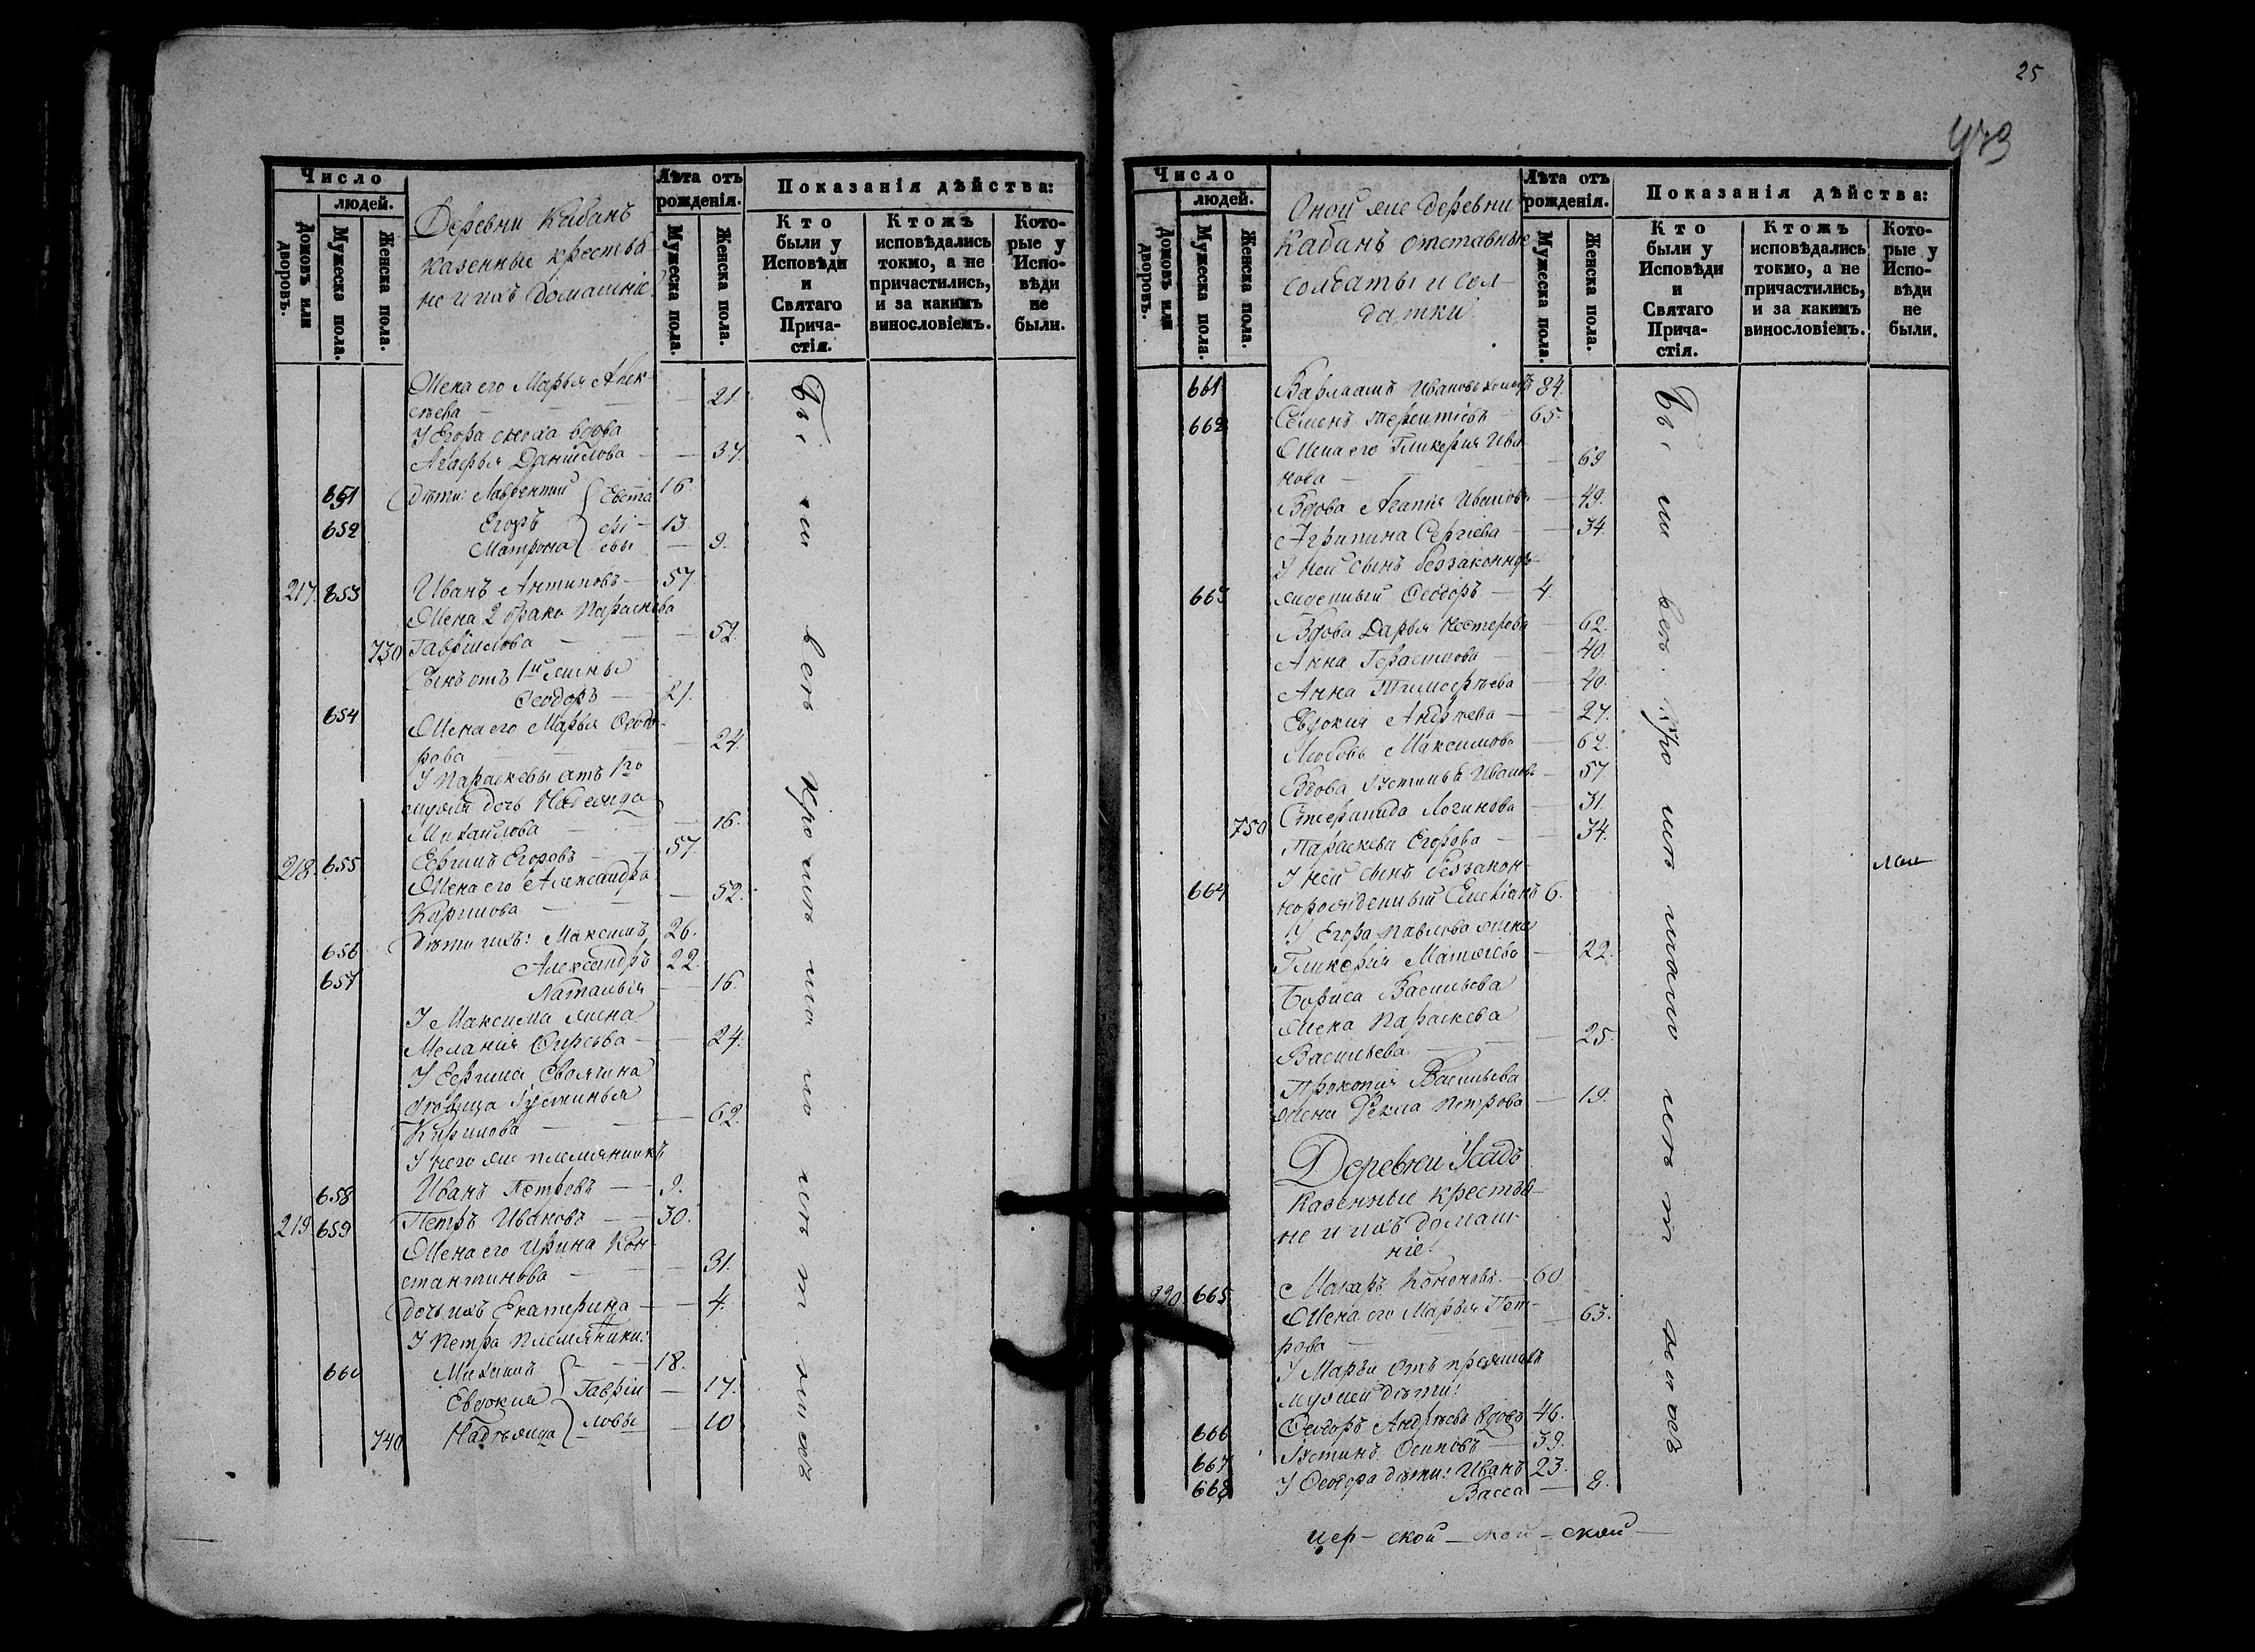 Число
людей.
Домовъ или дворовъ.
Мужеска пола.
Женска пола.
Деревни Кабанъ
казенные крестья
не и ихъ домашніе.
Лѣта отъ рожденія.
Мужеска пола.
Женска пола.
Показанія дѣйства:
Кто были у Исповѣди и Святаго Прича-стія.
Ктожъ исповѣдались токмо, а не причастились, и за какимъ винословіемъ.
Кото-рые у Испо-вѣди не были.
Жена его Марья Алек
сѣева — 21
У Егора сноха вдова
Агафья Данилова — 37.
651 Дѣти: Лаврентий 16.
652 Егоръ 13.
Матрона — 9.
217. 653 Иванъ Антиповъ — 57
Жена 2 брака Параскева
730 Гаврилова — 52.
Сынъ отъ 1й жены
654 Феодоръ — 21.
Жена его Марья Феодо
рова — 24.
У Параскевы отъ 1го
мужа дочь Надежда
Михайлова — 16.
218. 655 Ефимъ Егоровъ — 57.
Жена его Александра
Карпова — 52.
656 Дѣти ихъ: Максимъ 26.
657 Александръ 22.
Наталья — 16.
У Максима жена
Меланія — 24.
У Ефима
вдовица Густинья
Кирилова — 62.
У него же племянникъ
658 Иванъ Петровъ — 9.
219. 659 Петръ Ивановъ — 30.
Жена его Ирина Кон
стантинова — 31.
Дочь ихъ Екатерина — 4.
У Петра племянники:
660 Михаилъ — 18.
Евдокия Гаври — 17.
740 Надежда ловы — 10
25
473
Число
людей.
Домовъ или дворовъ.
Мужеска пола.
Женска пола.
Оной же деревни
Кабанъ отставные
солдаты и сол-
датки
Лѣта отъ рожденія.
Мужеска пола.
Женска пола.
Показанія дѣйства:
Кто были у Исповѣди и Святаго Прича-стія.
Ктожъ исповѣдались токмо, а не причастились, и за какимъ винословіемъ.
Кото-рые у Испо-вѣди не были.
661 Варлаамъ Ивановъ 84.
662 Семенъ Терентіевъ — 65.
Жена его Гликерия Ива
нова — 69
Вдова Агапія Иванова — 49.
Агрипина Сергіева — 34.
У ней сынъ беззаконнор-
663 жденный Феодоръ — 4.
Вдова Дарья Нестерова — 62.
Анна Герасимова — 40.
Анна Тимофѣева — 40.
Евдокия Андрѣева — 27.
Любовь Максимова — 62.
Вдова Густинья Иванова — 57.
Степанида Логинова — 31.
750 Параскева Егорова — 34.
У ней сынъ беззакон-
664 норожденный 6.
У Егора Павлова жена
Гликерия Матвѣева — 22.
Бориса Васильева
жена Параскева
Васильева — 25.
Прокопія Васильева
жена Фекла Петрова — 19.
Деревни Усадъ
казенные крестья-
не и ихъ домаш-
ніе.
220. 665 Макаръ Кононовъ — 60
Жена его Марья Пет-
рова — 63.
У Марьи отъ прежнихъ
мужей дѣти:
666 Феодоръ Андрѣевъ вдовъ 46.
667 Густинъ Осиповъ — 39.
668 У Феодора дѣти: Иванъ 23.
Васса — 8.
цер — ской — ской — ской —